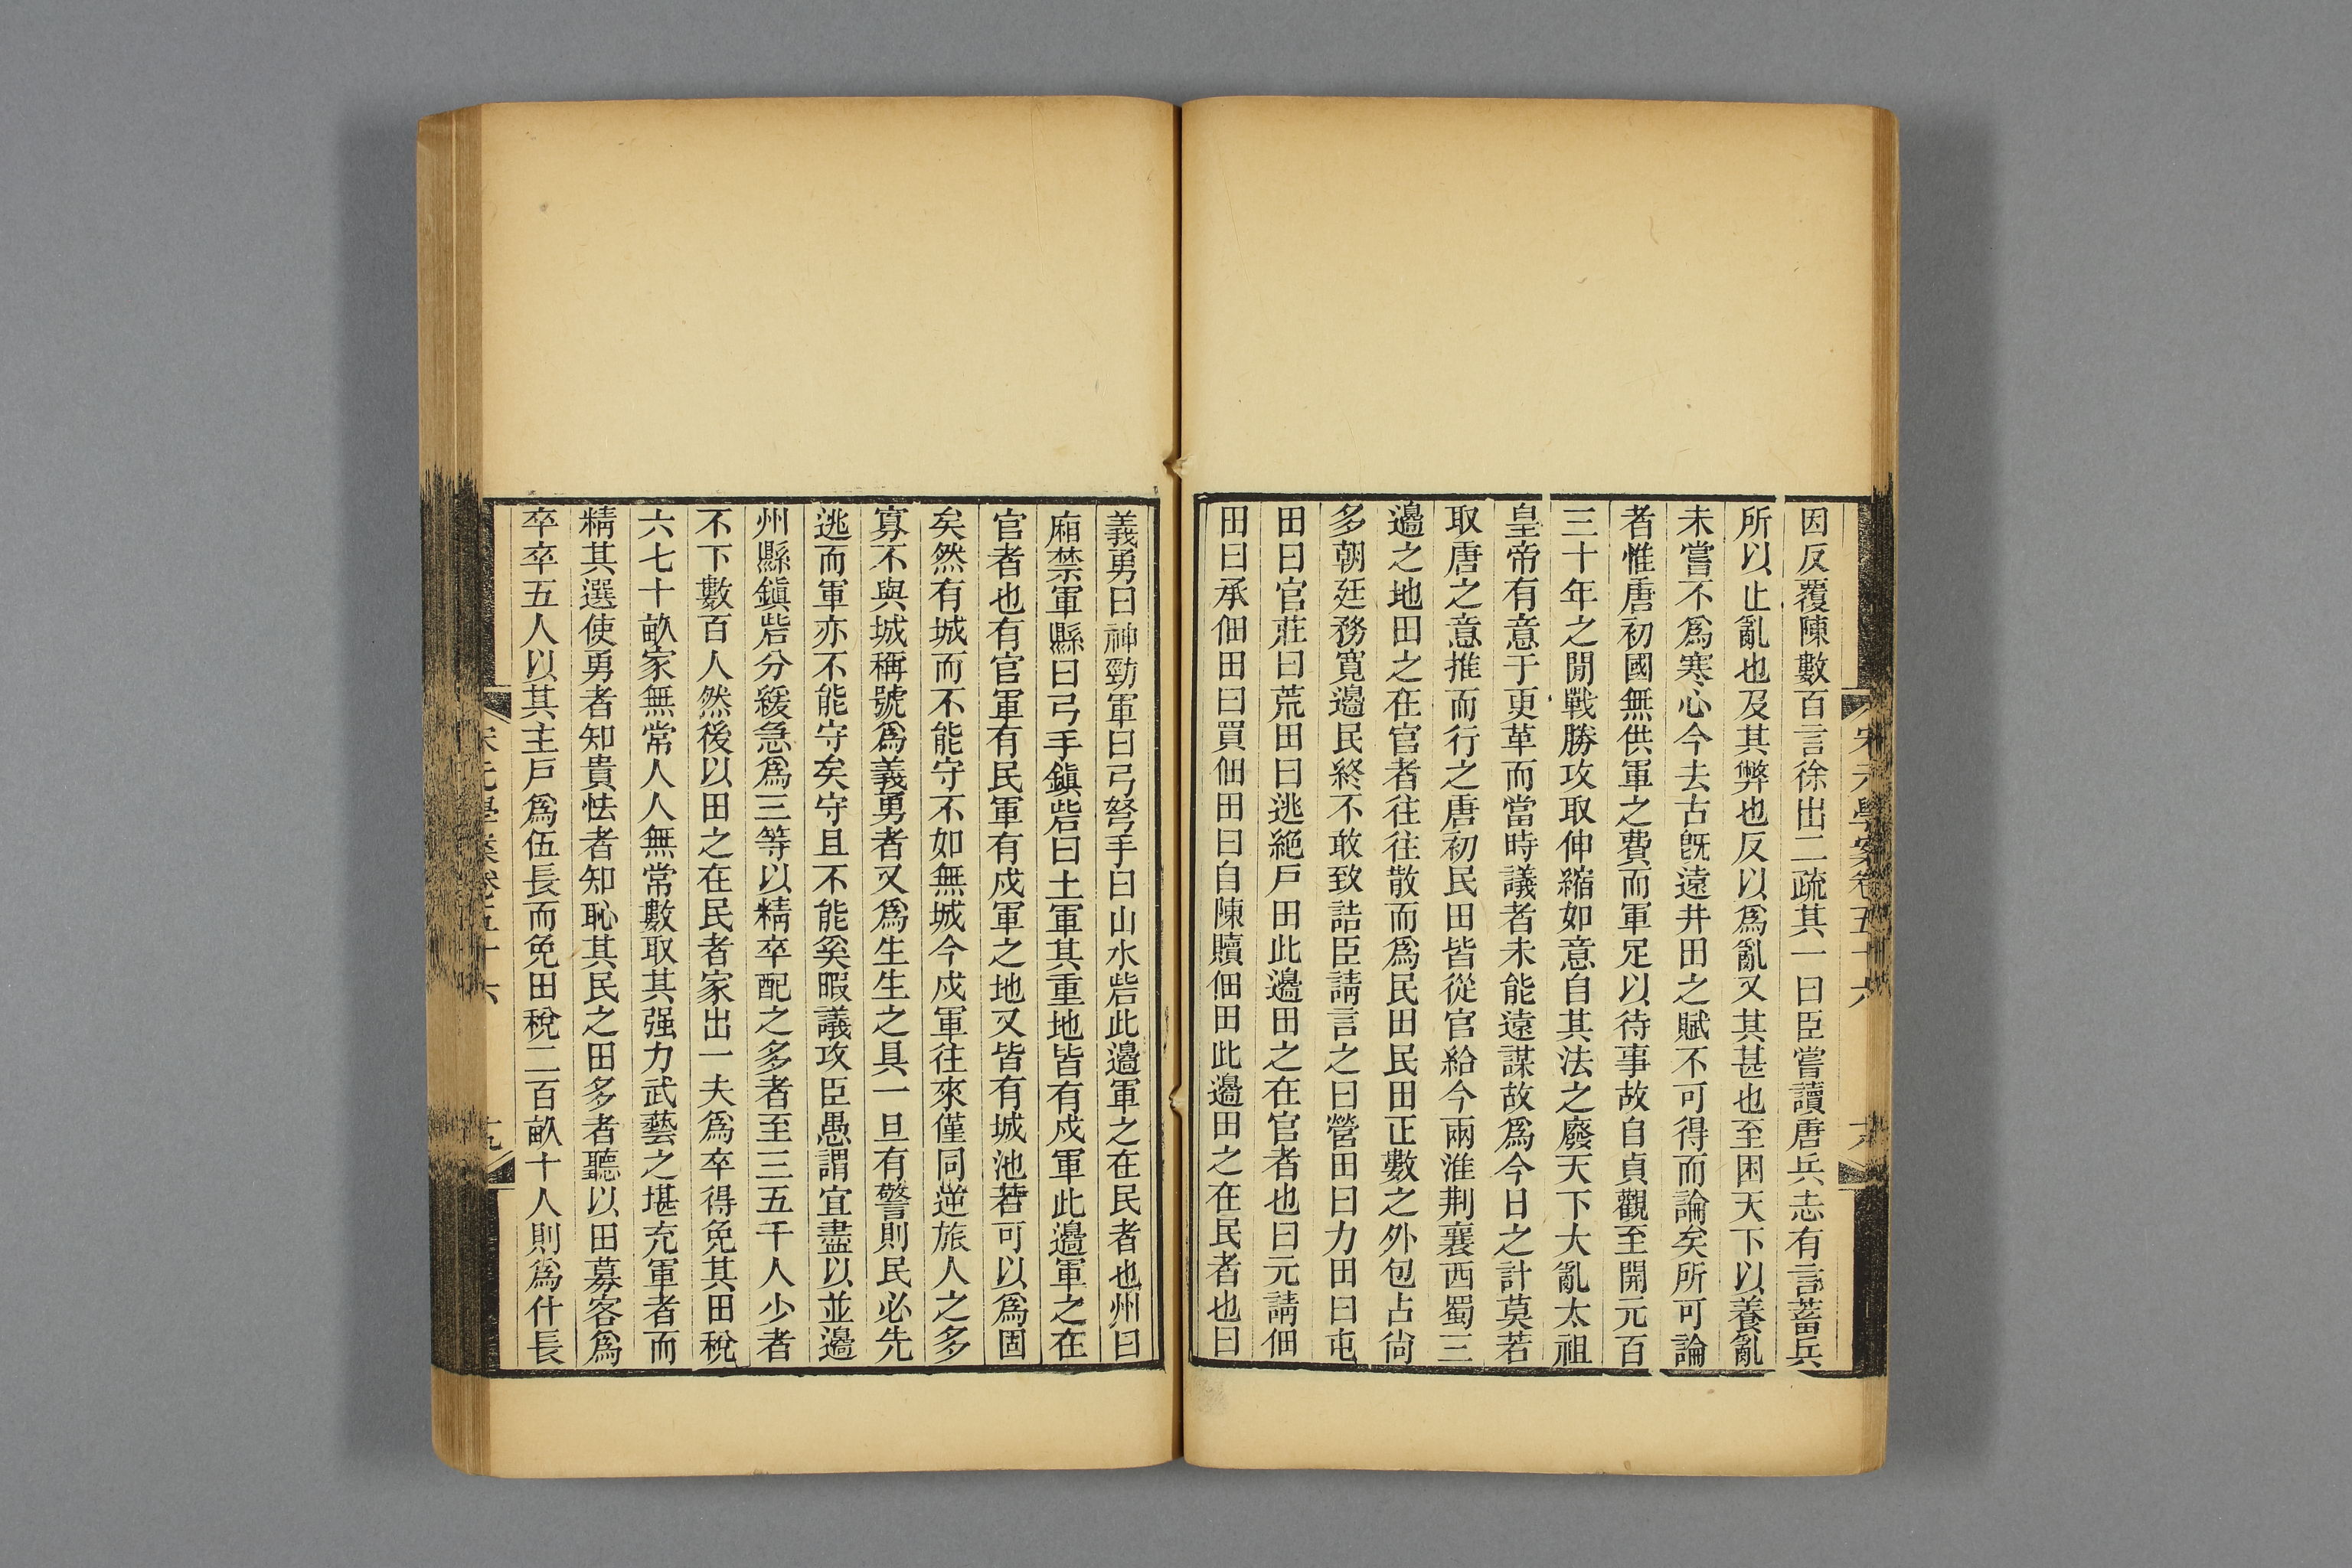 因反覆陳數百言徐出二疏其一曰臣嘗讀唐兵志有言蓄兵
所以止亂也及其弊也反以爲亂又其甚也至困天下以養亂
未嘗不爲寒心今去古旣遠井田之賦不可得而論矣所可論
者惟唐初國無供軍之費而軍足以待事故自貞觀至開元百
三十年之閒戰勝攻取伸縮如意自其法之廢天下大亂太祖
皇帝有意于更革而當時議者未能遠謀故爲今日之計莫若
取唐之意推而行之唐初民田皆從官給今兩淮荆襄西蜀三
邊之地田之在官者往往散而爲民田民田正數之外包占尙
多朝廷務寬邊民終不敢致詰臣請言之曰營田曰力田曰屯
田曰官莊曰荒田曰逃絕戸田此邊田之在官者也曰元請佃
田曰承佃田曰買佃田曰自陳贖佃田此邊田之在民者也曰
義勇曰神勁軍曰弓弩手曰山水砦此邊軍之在民者也州曰
廂禁軍縣曰弓手鎭砦曰土軍其重地皆有戍軍此邊軍之在
官者也有官軍有民軍有戍軍之地又皆有城池若可以爲固
矣然有城而不能守不如無城今戍軍往來僅同逆旅人之多
寡不與城稱號爲義勇者又爲生生之具一旦有警則民必先
逃而軍亦不能守矣守且不能奚暇議攻臣愚謂宜盡以並邊
州縣鎭砦分緩急爲三等以精卒配之多者至三五千人少者
不下數百人然後以田之在民者家出一夫爲卒得免其田稅
六七十畝家無常人人無常數取其强力武藝之堪充軍者而
精其選使勇者知貴怯者知恥其民之田多者聽以田募客爲
卒卒五人以其主戸爲伍長而免田稅二百畝十人則爲什長
宋元學案卷五十六